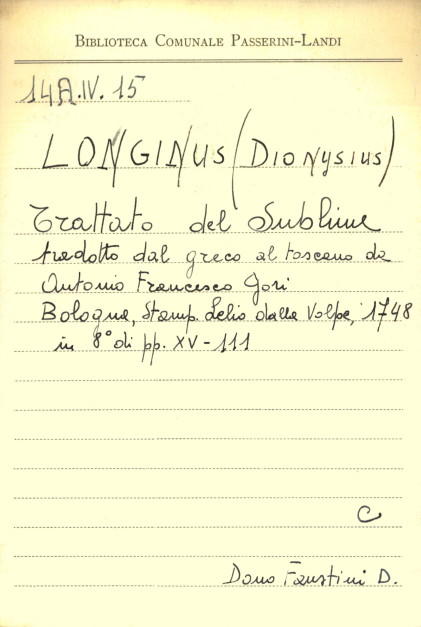 BIBLIOTECA COMUNALE PASSERINI-LANDI
14A.IV.15
LONGINUS (DIONYSIUS)
Trattato del Sublime
tradotto dal greco al toscano da
Antonio Francesco Gori
Bologna, Stamp. Lelio dalla Volpe, 1748
in 8° di pp. XV-111
C
Dono Faustini D.